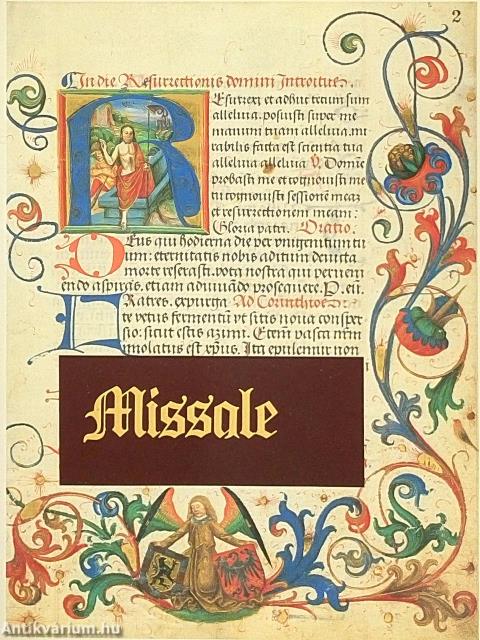 2
In die Resurrectionis domini Introitus.
Resurrexi et adhuc tecum sum
alleluia. posuisti super me
manum tuam alleluia. mi
rabilis facta est scientia tua
alleluia alleluia V. Domine
probasti me et cognouisti me
tu cognouisti sessione meaz
et resurrectionem meam:
Gloria patri. Oratio.
Deus qui hodierna die per vnigenitum tu
um: eternitatis nobis aditum deuicta
morte reserasti. vota nostra que preueni
endo aspiras, etiam adiuuando prosequere. P. eu.
Fratres. expurga Ad Corinthios
te vetus fermentū vt sitis noua consper
sio: sicut estis azimi. Etem pasca nrm
imolatus est xpus. Ita epulemur non
Missale
Antikvárium.hu